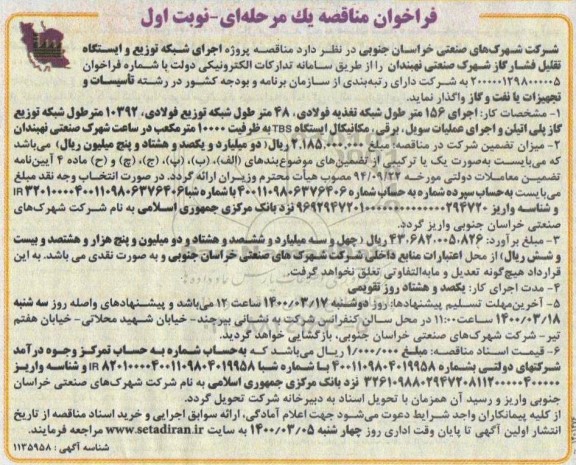 فراخوان مناقصه یك مرحله‌ای-نوبت اول
شرکت شهرک‌های صنعتی خراسان جنوبی در نظر دارد مناقصه پروژه اجرای شبکه توزیع و ایستگاه
تقلیل فشار گاز شهرک صنعتی نهبندان را از طریق سامانه تدارکات الکترونیکی دولت با شماره فراخوان
۲۰۰۰۰۰۱۲۹۸۰۰۰۰۰۵ به شرکت دارای رتبه‌بندی از سازمان برنامه و بودجه کشور در رشته تأسیسات و
تجهیزات یا نفت و گاز واگذار نماید.
۱- مشخصات کار: اجرای ۱۵۶ متر طول شبکه تغذیه فولادی، ۴۸ متر طول شبکه توزیع فولادی، ۱۰۳۹۲ مترطول شبکه توزیع
گاز پلی اتیلن و اجرای عملیات سویل، برقی، مکانیکال ایستگاه TBS به ظرفیت ۱۰۰۰۰ مترمکعب در ساعت شهرک صنعتی نهبندان
۲- میزان تضمین شرکت در مناقصه: مبلغ ۲.۱۸۵.۰۰۰.۰۰۰ ریال (دو میلیارد و یکصد و هشتاد و پنج میلیون ریال) می‌باشد
که می‌بایست به‌صورت یک یا ترکیبی از تضمین‌های موضوع‌بندهای (الف)، (ب)، (پ)، (ج)، (چ) و (ح) ماده ۴ آیین‌نامه
تضمین معاملات دولتی مورخه ۹۴/۰۹/۲۲ مصوب هیأت محترم وزیران ارائه گردد. در صورت انتخاب وجه نقد مبلغ
می‌بایست به‌حساب سپرده شماره به حساب شماره ۴۰۰۱۱۰۹۸۰۶۳۷۶۴۰۶ با شماره شبا IR
و شناسه واریز نزد بانک مرکزی جمهوری اسلامی به نام شرکت شهرک‌های
صنعتی خراسان جنوبی واریز گردد.
۳- مبلغ برآورد: ۴۳.۶۸۲.۰۰۵.۸۲۶ ریال (چهل و سه میلیارد و ششصد و هشتاد و دو میلیون و پنج هزار و هشتصد و بیست
و شش ریال) از محل اعتبارات منابع داخلی شرکت شهرک های صنعتی خراسان جنوبی و به صورت نقدی می باشد. به این
قرارداد هیچ‌گونه تعدیل و مابه‌التفاوتی تعلق نخواهد گرفت.
۴- مدت اجرای کار: یکصد و هشتاد روز تقویمی
۵- آخرین‌مهلت تسلیم پیشنهادها: روز دوشنبه ۱۴۰۰/۰۳/۱۷ ساعت ۱۲ می‌باشد و پیشنهادهای واصله روز سه شنبه
۱۴۰۰/۰۳/۱۸ ساعت۱۱:۰۰ در محل سالن کنفرانس شرکت به نشانی بیرجند- خیابان شهید محلاتی- خیابان هفتم
تیر- شرکت شهرک‌های صنعتی خراسان جنوبی، بازگشایی خواهد گردید.
۶- قیمت اسناد مناقصه: مبلغ ۱/۰۰۰/۰۰۰ ریال می‌باشد که به‌حساب شماره به حساب تمرکز وجوه درآمد
شرکتهای دولتی بشماره ۴۰۰۱۱۰۹۸۰۴۰۱۹۹۵۸ با شماره شبا IR و شناسه واریز
نزد بانک مرکزی جمهوری اسلامی به نام شرکت شهرک‌های صنعتی خراسان
جنوبی واریز و رسید آن همزمان با تحویل اسناد به دبیرخانه شرکت تحویل گردد.
از کلیه پیمانکاران واجد شرایط دعوت می‌شود جهت اعلام آمادگی، ارائه سوابق اجرایی و خرید اسناد مناقصه از تاریخ
انتشار اولین آگهی تا پایان وقت اداری روز چهار شنبه ۱۴۰۰/۰۳/۰۵ به سایت www.setadiran.ir مراجعه فرمایند.
شناسه آگهی: ۱۱۳۵۹۵۸